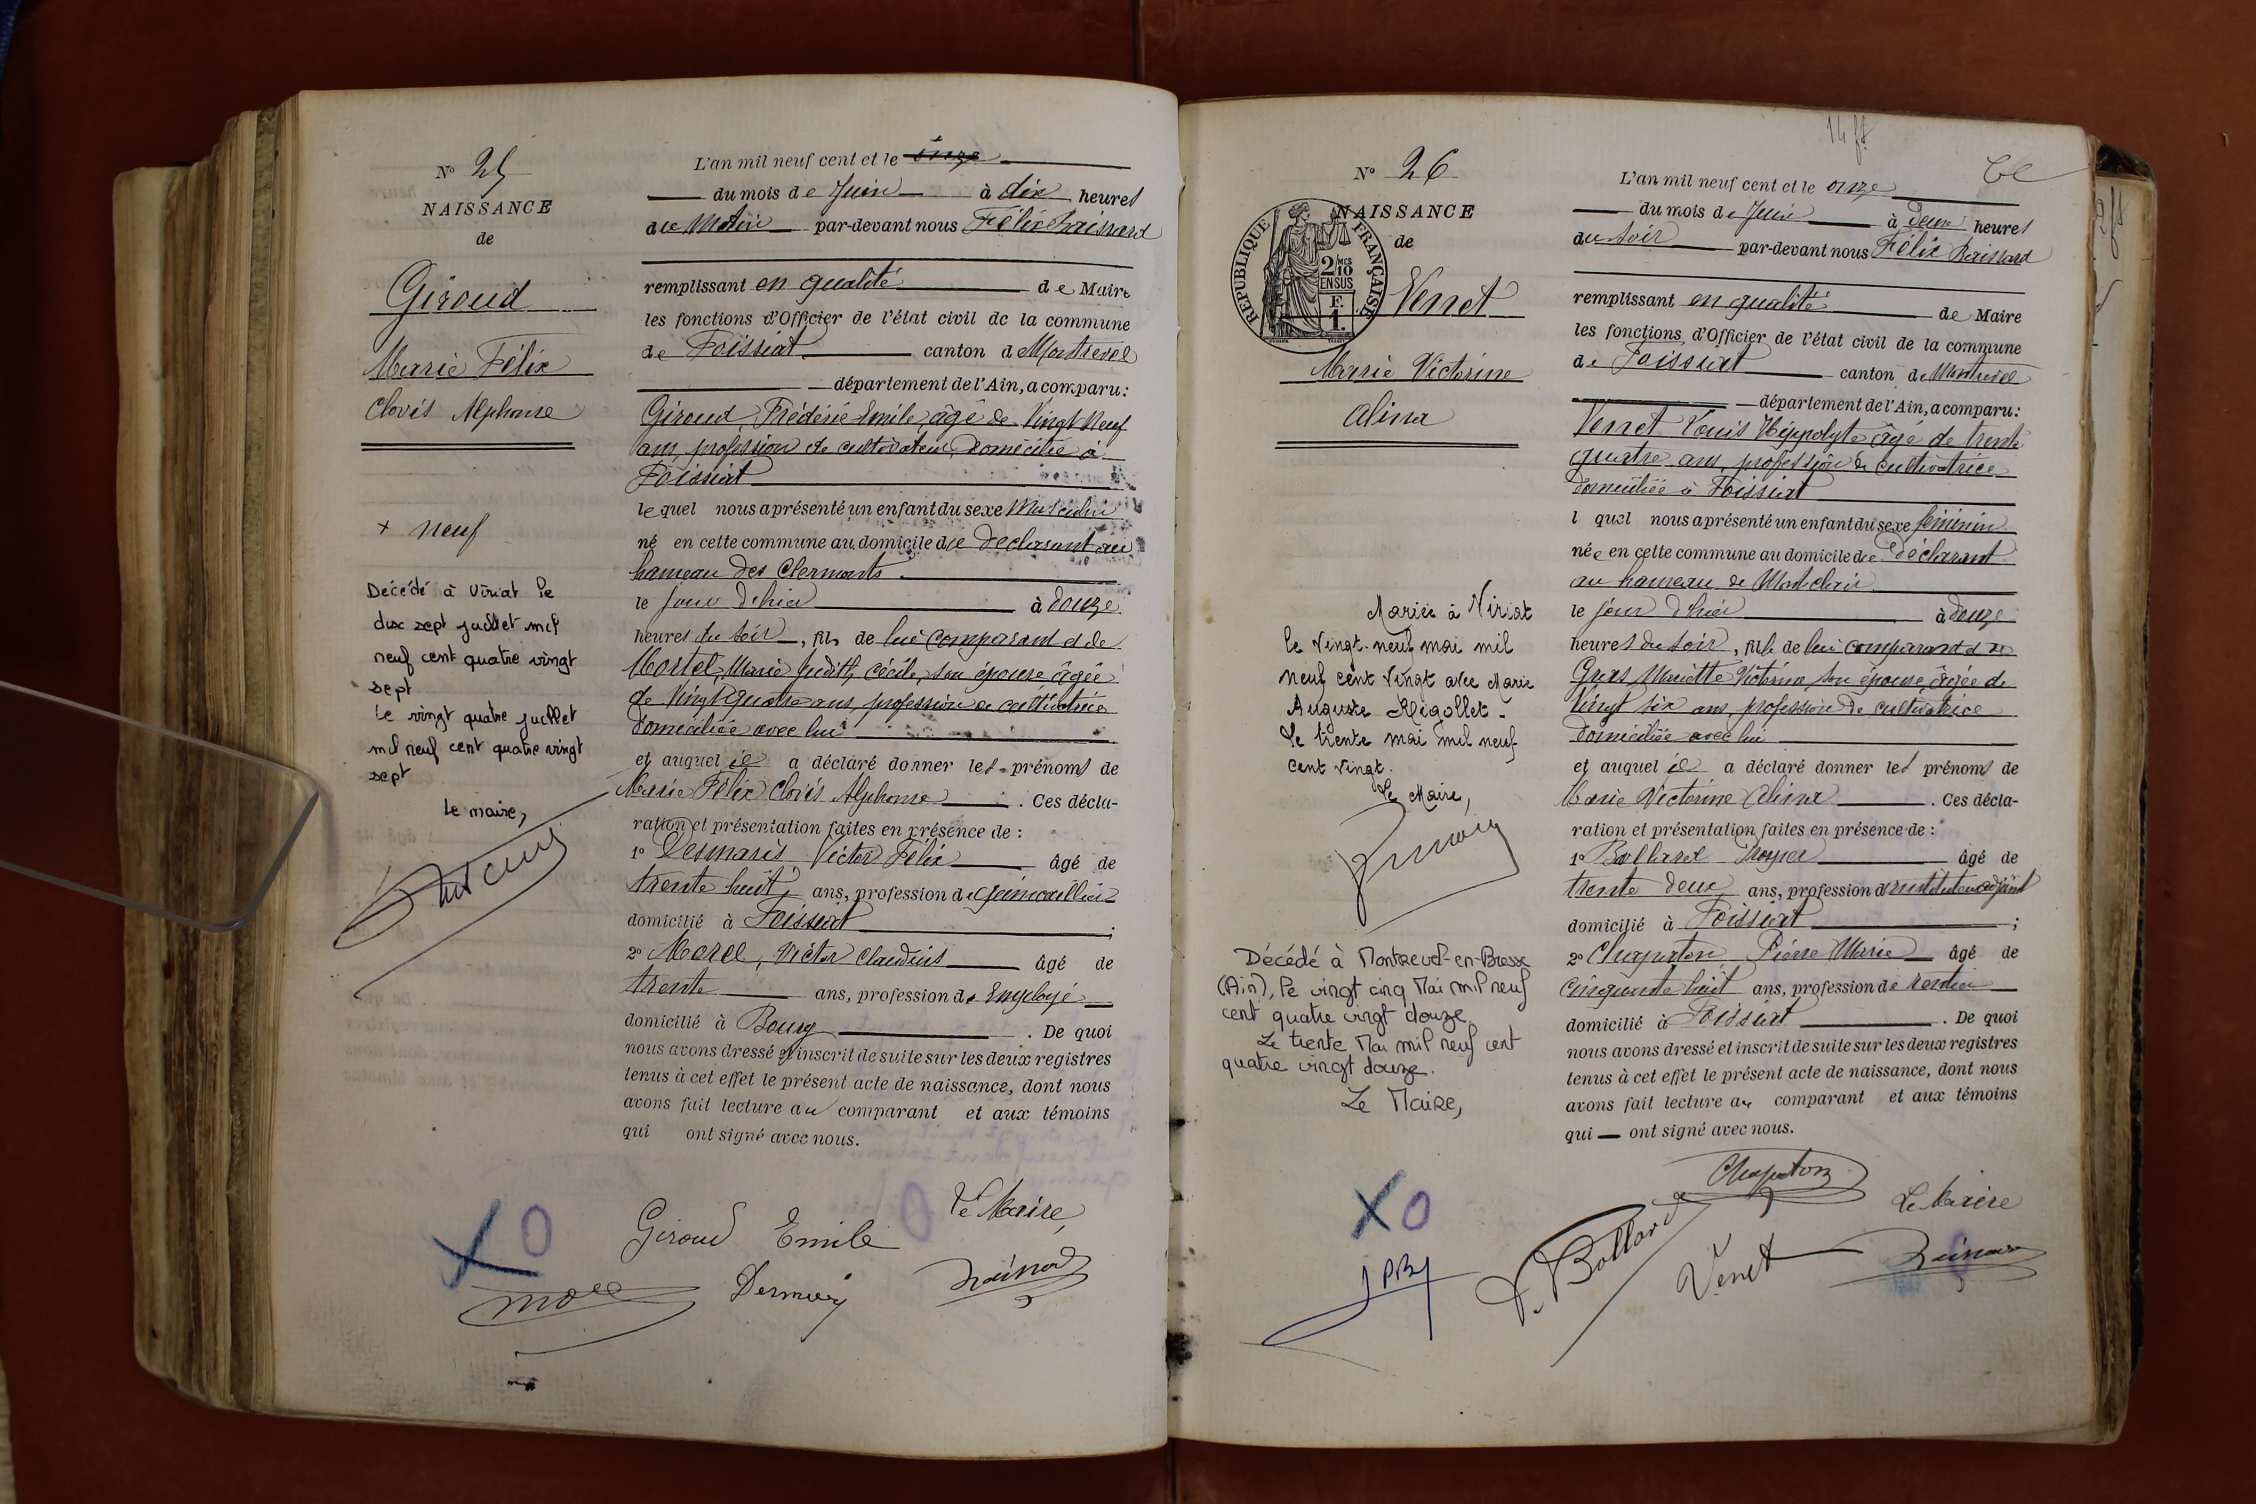 N° 25
NAISSANCE
de
Giroud
Marie Félix
Clovis Alphonse
+ neuf
Décédé à Viriat le
dix sept juillet mil
neuf cent quatre vingt
sept
Le vingt quatre juillet
mil neuf cent quatre vingt
sept
Le maire,
L'an mil neuf cent et le onze
du mois de Juin à dix heures
du Matin par-devant nous Félix
remplissant en qualité de Maire
les fonctions d'Officier de l'état civil de la commune
de Foissiat canton de Montrevel
département de l'Ain, a comparu:
Giroud, Frédéric Emile, âgé de Vingt Neuf
ans, profession de cultivateur, domicilié à
Foissiat
lequel nous a présenté un enfant du sexe Masculin
né en cette commune au domicile du déclarant au
hameau des Clermonts
le jour d'hier à douze
heures du soir, fils de lui comparant et de
Mortel, Marie Judith, Cécile, son épouse âgée
de Vingt quatre ans, profession de cultivatrice
domiciliée avec lui
et auquel il a déclaré donner les prénoms de
Marie Félix Clovis Alphonse. Ces décla-
ration et présentation faites en présence de :
1° Desmaris Victor Félix âgé de
trente huit ans, profession de quincaillier
domicilié à Foissiat ;
2° Morel, Victor Claudius âgé de
trente ans, profession de Employé
domicilié à Bourg. De quoi
nous avons dressé et inscrit de suite sur les deux registres
tenus à cet effet le présent acte de naissance, dont nous
avons fait lecture au comparant et aux témoins
qui ont signé avec nous.
Le Maire,
Giroud Emile
X 0
N° 26
NAISSANCE
de
RÉPUBLIQUE FRANÇAISE
2/10 MES
EN SUS
F.
1.
Venet
Marie Victorine
Alina
Mariée à Viriat
le vingt-neuf mai mil
neuf cent vingt avec Marie
Auguste Rigollet.
Le trente mai mil neuf
cent vingt.
Le Maire,
Décédé à Montrevel-en-Bresse
(Ain), le vingt cinq Mai mil neuf
cent quatre vingt douze
Le trente Mai mil neuf cent
quatre vingt douze.
Le Maire,
X 0
L'an mil neuf cent et le onze
du mois de Juin à deux heures
du soir par-devant nous Félix
remplissant en qualité de Maire
les fonctions d'Officier de l'état civil de la commune
de Foissiat canton de Montrevel
département de l'Ain, a comparu:
Venet Louis Hippolyte âgé de trente
quatre ans, profession de cultivatrice
domiciliée à Foissiat
l quel nous a présenté un enfant du sexe féminin
née en cette commune au domicile du déclarant
au hameau de Montclair
le jour d'hier à douze
heures du soir, fille de lui comparant et de
Gras Mariette Victorine son épouse, âgée de
Vingt six ans, profession de cultivatrice
domiciliée avec lui
et auquel il a déclaré donner les prénoms de
Marie Victorine Alina. Ces décla-
ration et présentation faites en présence de :
1° Bollard âgé de
trente deux ans, profession d'instituteur adjoint
domicilié à Foissiat ;
2° Chapaton Pierre Marie âgé de
Cinquante huit ans, profession de rentier
domicilié à Foissiat. De quoi
nous avons dressé et inscrit de suite sur les deux registres
tenus à cet effet le présent acte de naissance, dont nous
avons fait lecture au comparant et aux témoins
qui ont signé avec nous.
Chapaton
Le Maire
Bollard
Venet